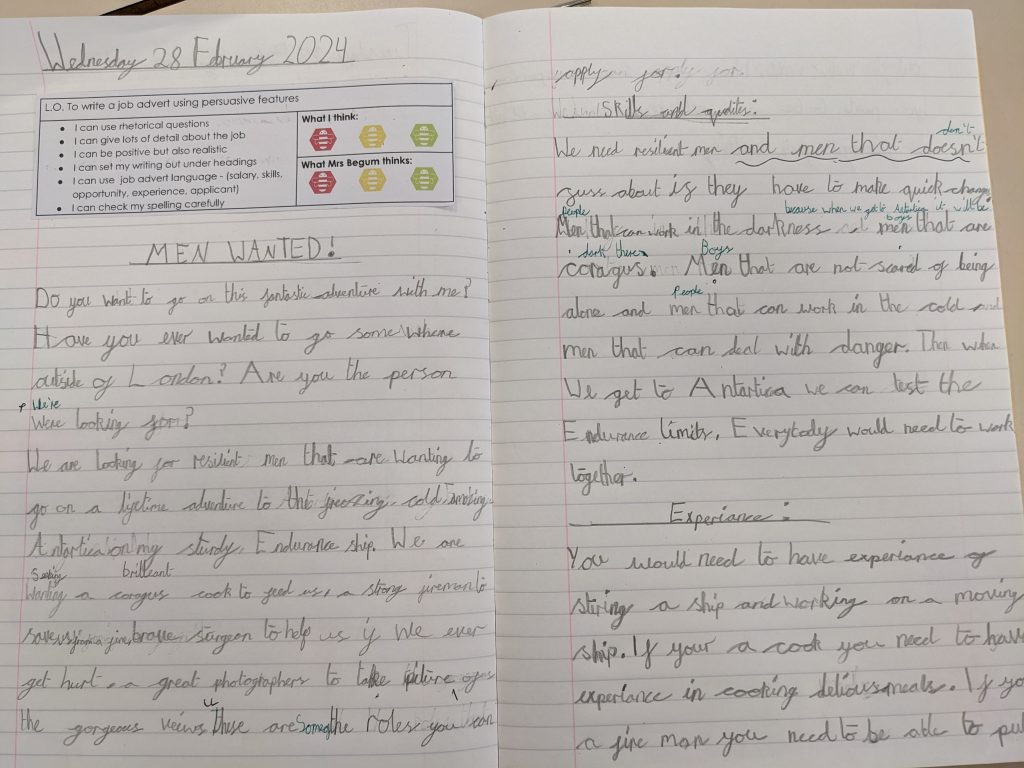 Wednesday 28 February 2024
L.O. To write a job advert using persuasive features
I can use rhetorical questions
I can give lots of detail about the job
I can be positive but also realistic
I can set my writing out under headings
I can use job advert language - (salary, skills,
opportunity, experience, applicant)
I can check my spelling carefully
What I think:
What Mrs Begum thinks:
MEN WANTED!
Do you want to go on this fantastic adventure with me?
Have you ever wanted to go some where
outside of London? Are you the person
We're
Were looking for?
We are looking for resilient men that are wanting to
go on a lifetime adventure to the freezing, cold
Antartica on my sturdy, Endurance ship. We are
Seeking brilleant
Wanting a coragus cook to feed us, a strong fireman to
save us from a fire, brave surgeon to help us if We ever
get hurt, a great photographers to take picture of
the gorgeous veiws. These are some of the roles you can
apply for.
Skills and qualites:
don't
We need resilient men and men that doesn't
fuss about if they have to make quick change
people because when we get to Antartica it will be
Men that can work in the darkness men that are
dark there boys
coragus. Men that are not scared of being
Boys
people
alone and men that can work in the cold and
men that can deal with danger. Then when
We get to Antartica we can test the
Endurance limits. Everybody would need to work
together.
Experiance:
You would need to have experiance of
stiring a ship and working on a moving
ship. If your a cook you need to have
experiance in cooking delicus meals. If you
a fire man you need to be able to pu